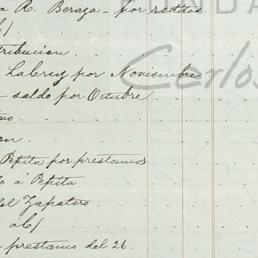 a R. Beraza - por reditos
a/
tribucion.
Lacruz por Noviembre
- saldo por Octubre
on
Pepita por prestamos
o á Pepita
del Zapatero
a/
- prestamo del 26.